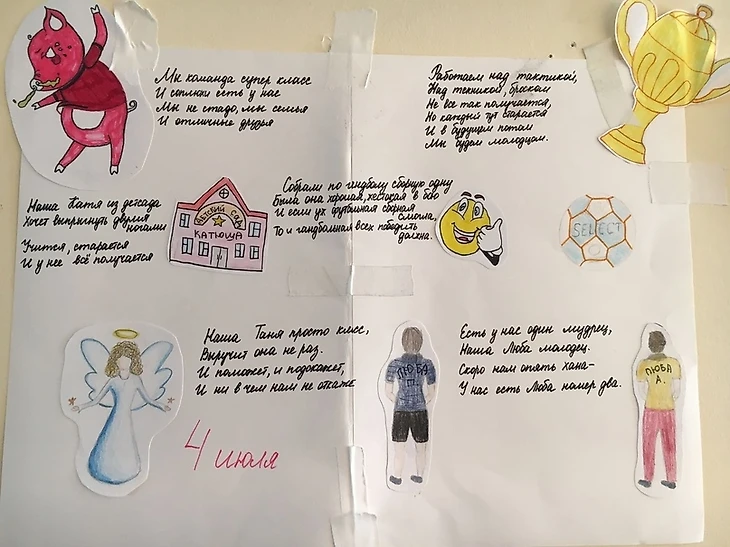 Мы команда супер класс
И сопливки есть у нас
Мы не стадо, мы семья
И отличные друзья
Работаем над тактикой,
Над техникой, броском
Не все так получается,
Но каждый тут старается
И в будущем потом
Мы будем молодцом.
Наша Катя из детсада
Хочет выпрыгнуть двумя
ногами
Учится, старается
И у нее всё получается
ДЕТСКИЙ САД
КАТЮША
Собрали по гандболу сборную одну
Была она хорошая, жестокая в бою
И если уж футбольная сборная
смогла,
То и гандбольная всех победить
должна.
SELECT
Наша Таня просто класс,
Выручит она не раз.
И поможет, и подскажет,
И ни в чем нам не откаже
ЛЮБА
П.
Есть у нас один мудрец,
Наша Люба молодец.
Скоро нам опять хана-
У нас есть Люба номер два.
ЛЮБА
А.
4 июля